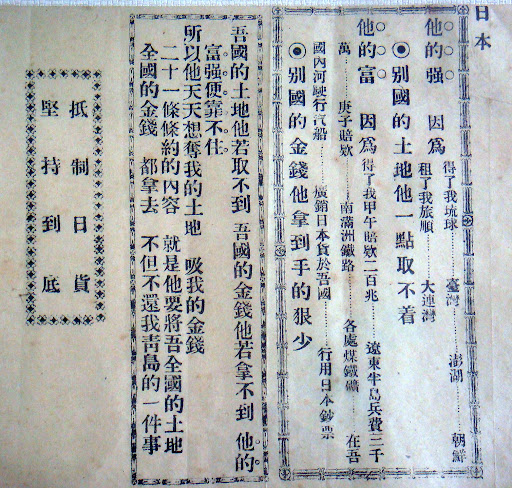 日本
他的强 因爲
得了我琉球………臺灣………澎湖………朝鮮
租了我旅順………大連灣
◉別國的土地他一點取不着
他的富 因爲
得了我甲午賠欵二百兆………遼東半島兵費三千
萬………庚子賠欵………南滿洲鐵路………各處煤鐵礦………在吾
國內河駛行汽船………廣銷日本貨於吾國………行用日本鈔票
◉別國的金錢他拿到手的狠少
吾國的土地他若取不到 吾國的金錢他若拿不到 他的
富强便靠不住
所以他天天想奪我的土地 吸我的金錢
二十一條條約的內容 就是他要將吾全國的土地
全國的金錢 都拿去 不但不還我靑島的一件事
抵制日貨
堅持到底